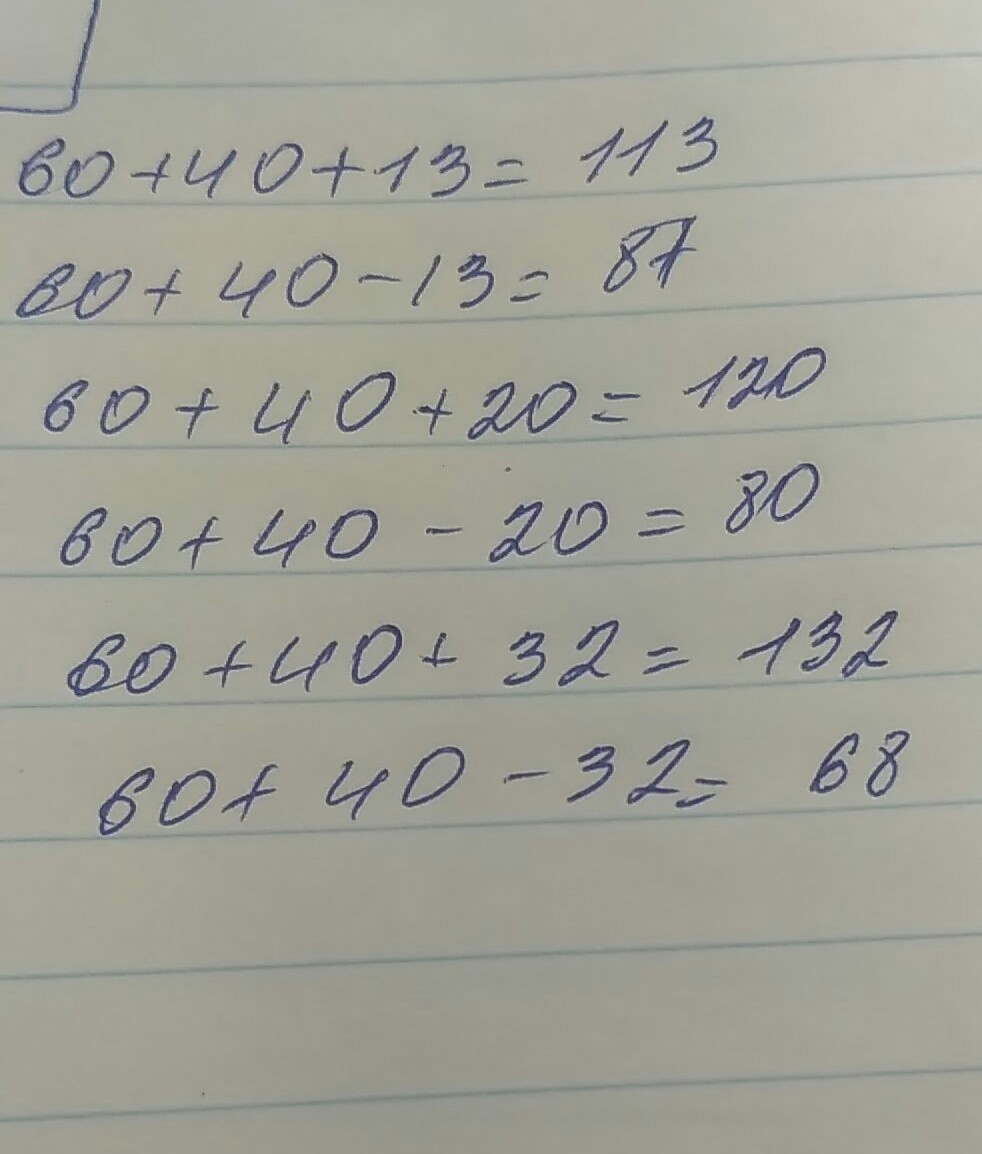 60+40+13= 113
60+40-13= 87
60+40+20= 120
60+40-20= 80
60+40+32= 132
60+40-32= 68